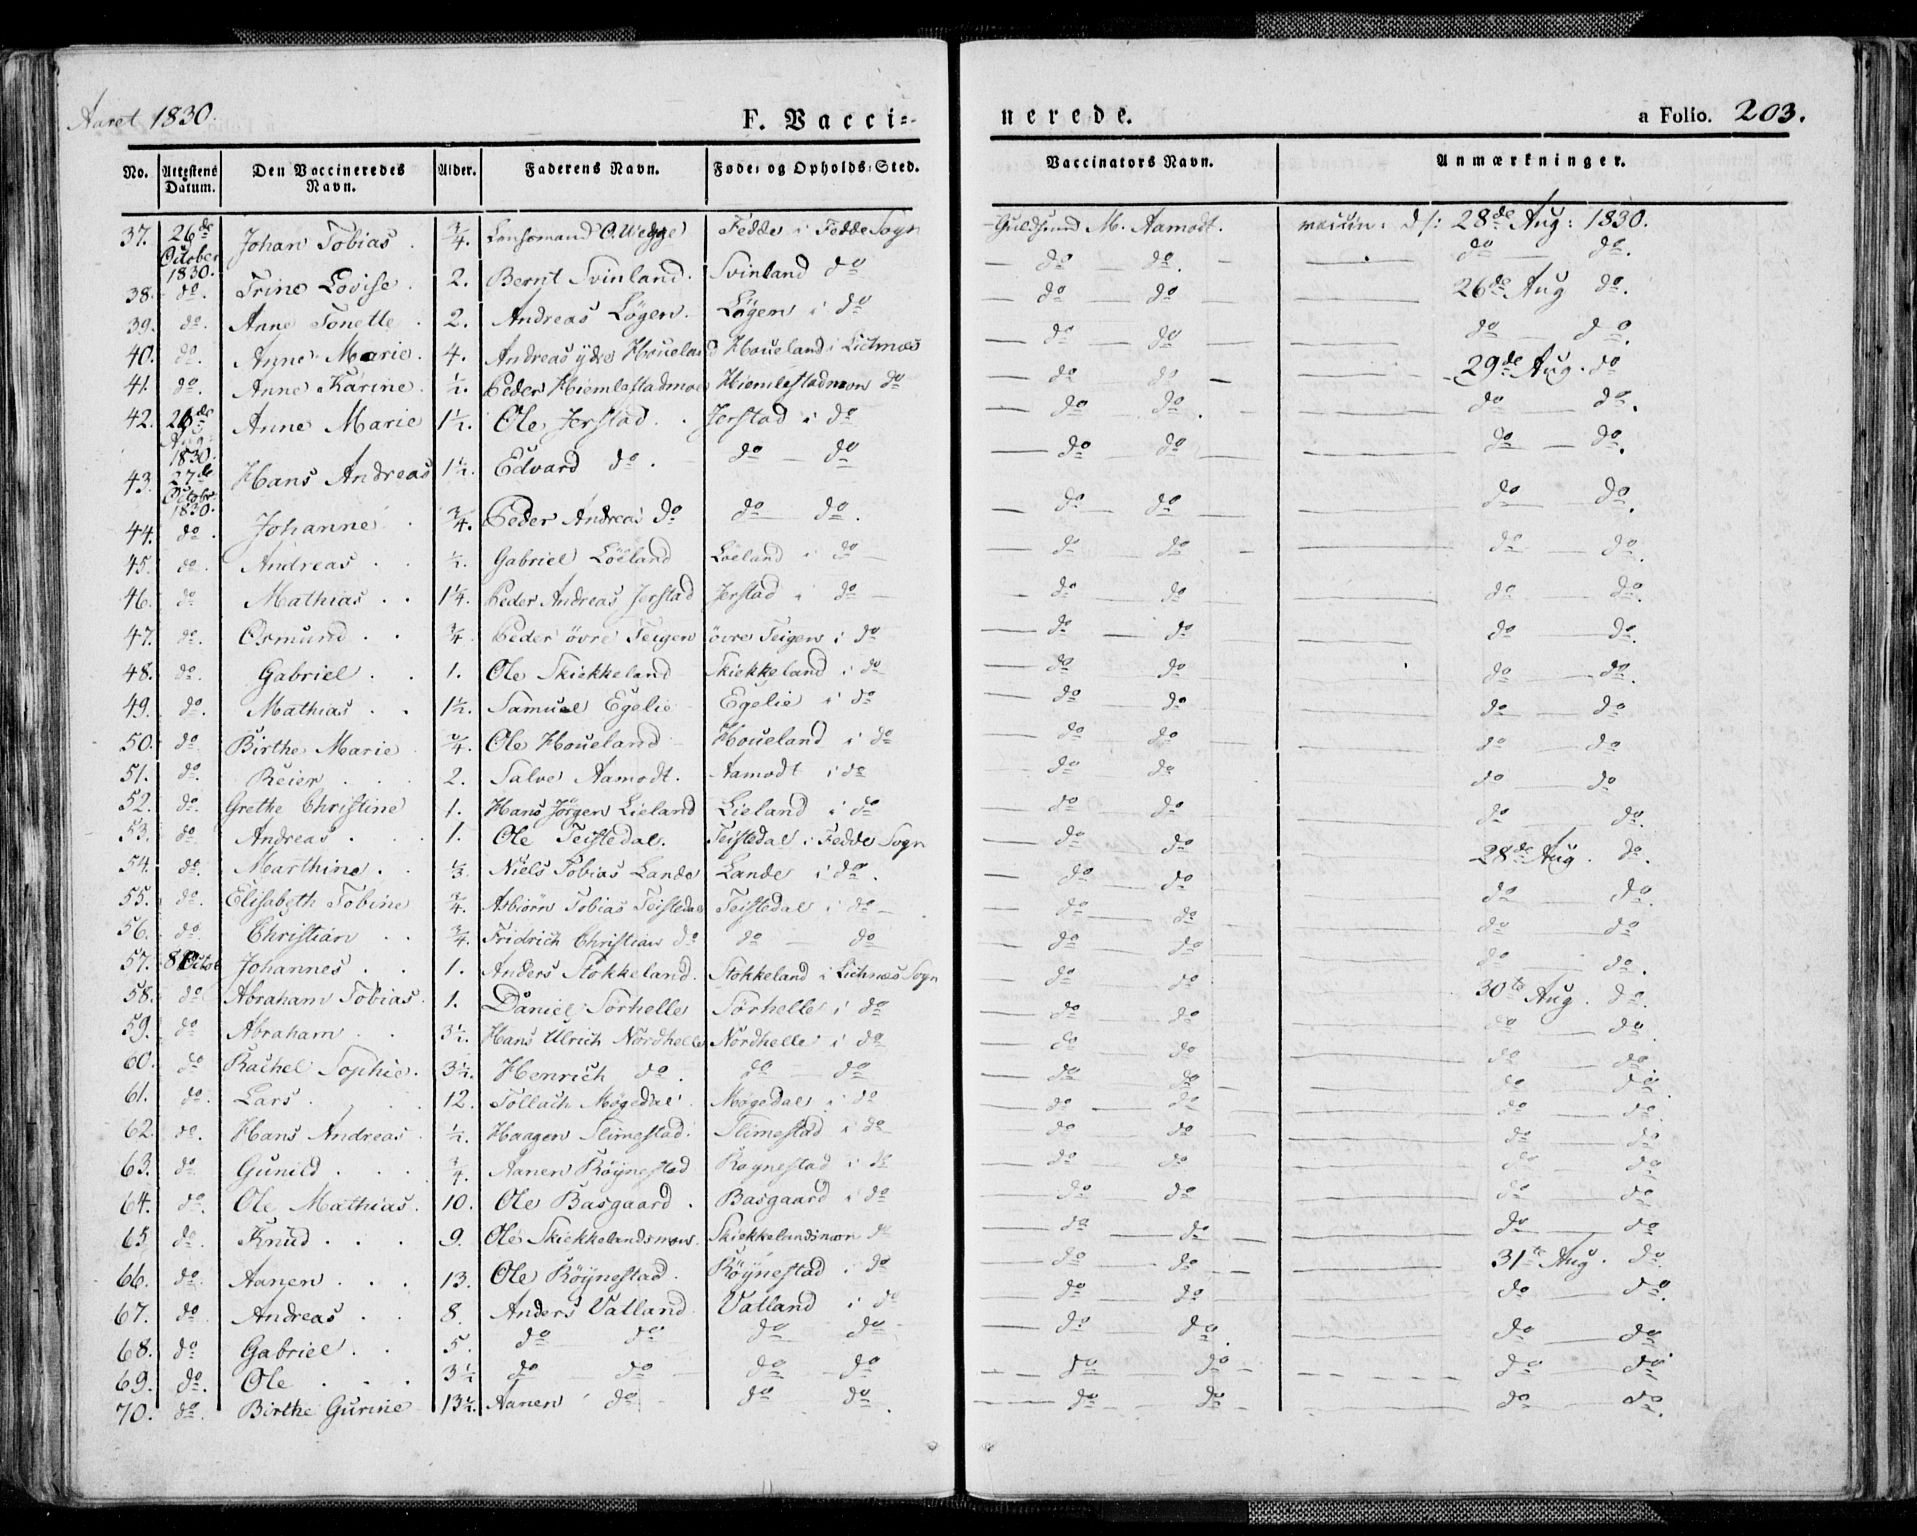 Aaret 1830.
F. Vacci=
nerede.
a Folio. 203.
No. Attestens Datum. Den Vaccineredes Navn. Alder. Faderens Navn. Føde= og Opholds=Sted. Vaccinators Navn. Anmærkninger.
37. 26de October 1830. Johan Tobias. 3/4. Lensmand Fedde i Fedde Sogn Guldsmed M. Aamodt. vaccin: d: 28de Aug: 1830.
38. do. Trine Lovise. 2. Bernt Svinland. Svinland do — do — do. — do do.
39. do. Anne Tonette. 2. Andreas Lögen. Lögen i do — do — do — 26de Aug do.
40. do. Anne Marie. 4. Andreas ydre Houeland Houeland i Lichnæs — do do — do do.
41. do. Anne Karine. 1/2. Peder Hiemlestadmoe Hiemlestadmon do — do do — 29de Aug. do
42. 26de Aug: 1830. Anne Marie 1 1/2. Ole Jerstad. Jerstad i do — do do. — do do.
43. 27de Octobr. 1830. Hans Andreas 1 1/2. Edvard do. do — do — do do — do — do.
44. do. Johanne 3/4. Peder Andreas do do do. — do do — do — do.
45. do. Andreas 1/2. Gabriel Löeland Löeland i do — do do — do — do.
46. do Mathias 1 1/4. Peder Andreas Jerstad Jerstad i do — do do — do — do.
47. do. Osmund 3/4. Peder övre Teigen övre Teigen i do — do — do — do — do.
48. do. Gabriel 1. Ole Skiekkeland Skiekkeland i do — do do — do — do.
49. do. Mathias 1 1/2. Samuel Egelie Egelie i do — do do — do — do
50. do Birthe Marie 3/4. Ole Houeland Houeland i do — do do — do — do
51. do. Reier 2. Salve Aamodt. Aamodt i do — do do — do — do
52. do. Grethe Christine 1. Hans Jörgen Lieland Lieland i do — do — do — do — do.
53. do Andreas 1. Ole Teistedal. Teistedal i Fedde Sogn — do do — 28de Aug. do.
54. do. Marthine 1/3. Niels Tobias Lande Lande i do. — do — do — do — do.
55. do. Elisabeth Tobine 3/4. Asbiörn Tobias Teistedal Teistedal i do — do — do — do — do
56. do Christian 3/4. Fridrich Christian do do — do — do — do — do — do.
57. 8 Octob Johannes 1. Anders Stokkeland. Stokkeland i Lichnæs Sogn — do do. — 30te Aug. do.
58. do Abraham Tobias. 1. Daniel Sörhelle Sörhelle i do — do — do — do — do
59. do Abraham 3 1/2. Hans Ulrich Nordhelle Nordhelle i do — do do — do — do.
60. do Rachel Sophie. 3 1/2. Henrich do. do — do — do do — do do.
61. do. Lars 12. Tollach Mögedal Mögedal i do — do — do — do — do.
62. do. Hans Andreas 1/2. Haagen Slimestad. Slimestad i do — do do — do — do
63. do Gunild 3/4. Aanen Röynestad Röynestad i do — do do — do — do
64. do. Ole Mathias. 10. Ole Basgaard. Basgaard i do — do do — do — do
65. do. Knud 9. Ole Skiekkelandsmon. Skiekkelandsmon do — do — do — do — do
66. do. Aanen 13. Ole Röynestad. Röynestad i do — do do — 31te Aug. do.
67. do Andreas 8. Anders Vatland Vatland i do — do — do — do — do.
68. do Gabriel 5. do do do — do — do — do. — do — do.
69. do. Ole 3 1/2 do — do do — do — do — do — do — do
70. do. Birthe Gurine 13 1/2. Aanen do do do. — do — do — do do.